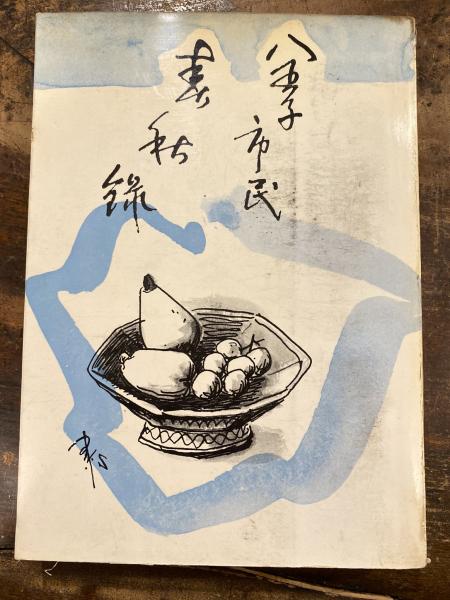 八王子
市民
春秋
錄